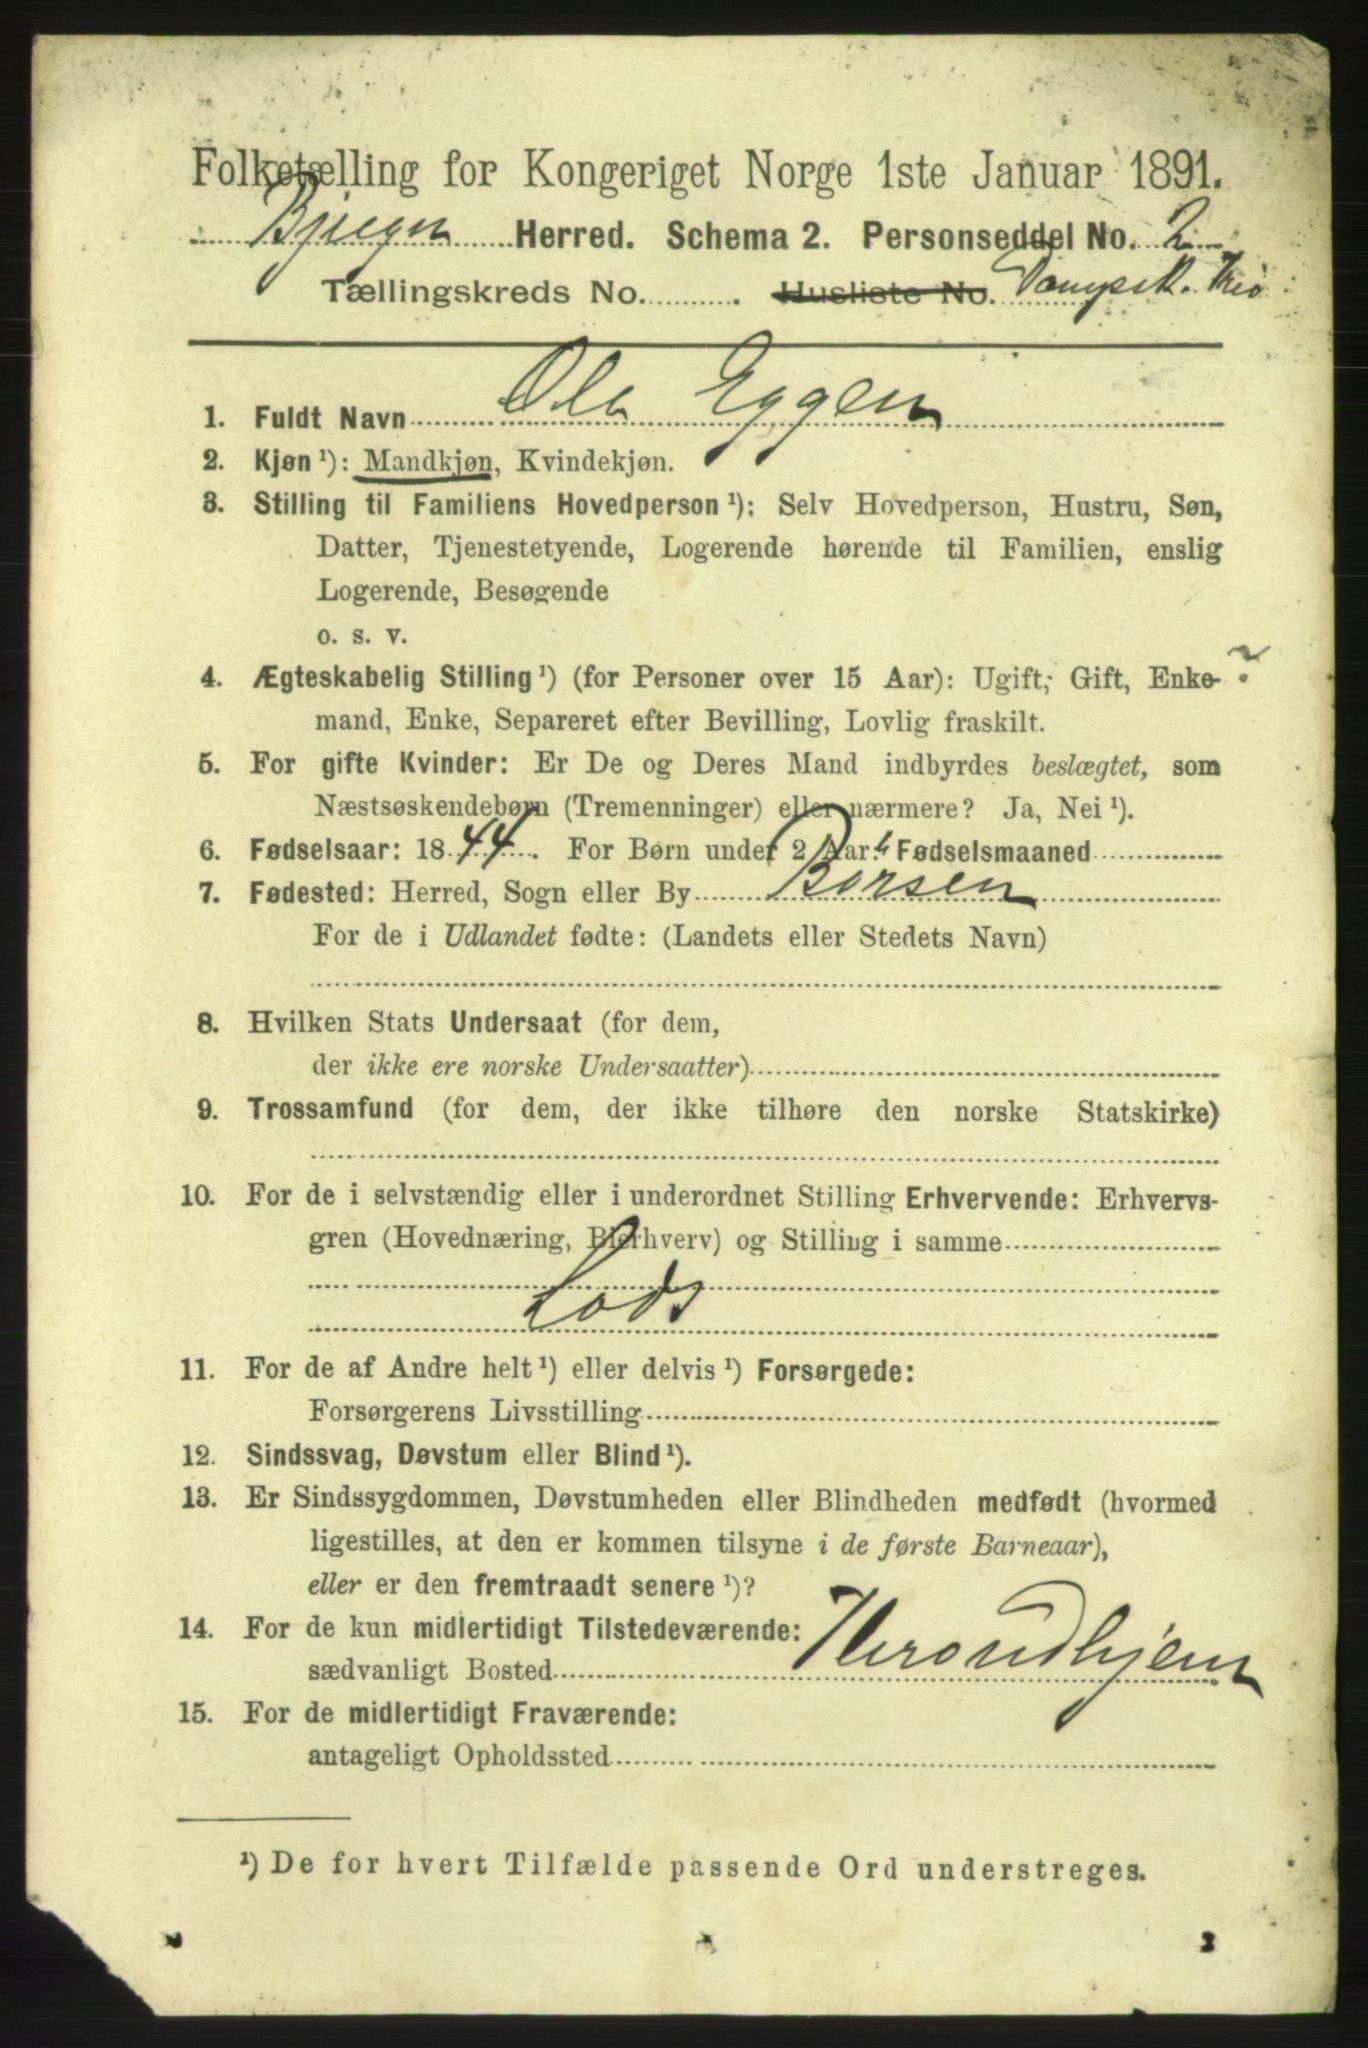 Folketælling for Kongeriget Norge 1ste Januar 1891.
Bjugn Herred. Schema 2. Personseddel No. 2
Tællingskreds No. . Husliste No. Dampsk.
1. Fuldt Navn Ole Eggen
2. Kjøn ¹): Mandkjøn, Kvindekjøn.
3. Stilling til Familiens Hovedperson ¹): Selv Hovedperson, Hustru, Søn,
Datter, Tjenestetyende, Logerende hørende til Familien, enslig
Logerende, Besøgende
o. s. v.
4. Ægteskabelig Stilling ¹) (for Personer over 15 Aar): Ugift, Gift, Enke- ?
mand, Enke, Separeret efter Bevilling, Lovlig fraskilt.
5. For gifte Kvinder: Er De og Deres Mand indbyrdes beslægtet, som
Næstsøskendebørn (Tremenninger) eller nærmere? Ja, Nei ¹).
6. Fødselsaar: 1844. For Børn under 2 Aar: Fødselsmaaned
7. Fødested: Herred, Sogn eller By Børsen
For de i Udlandet fødte: (Landets eller Stedets Navn)
8. Hvilken Stats Undersaat (for dem,
der ikke ere norske Undersaatter)
9. Trossamfund (for dem, der ikke tilhøre den norske Statskirke)
10. For de i selvstændig eller i underordnet Stilling Erhvervende: Erhvervs-
gren (Hovednæring, Bierhverv) og Stilling i samme
Lods
11. For de af Andre helt ¹) eller delvis ¹) Forsørgede:
Forsørgerens Livsstilling
12. Sindssvag, Døvstum eller Blind ¹).
13. Er Sindssygdommen, Døvstumheden eller Blindheden medfødt (hvormed
ligestilles, at den er kommen tilsyne i de første Barneaar),
eller er den fremtraadt senere ¹)?
14. For de kun midlertidigt Tilstedeværende:
sædvanligt Bosted Throndhjem
15. For de midlertidigt Fraværende:
antageligt Opholdssted
¹) De for hvert Tilfælde passende Ord understreges.